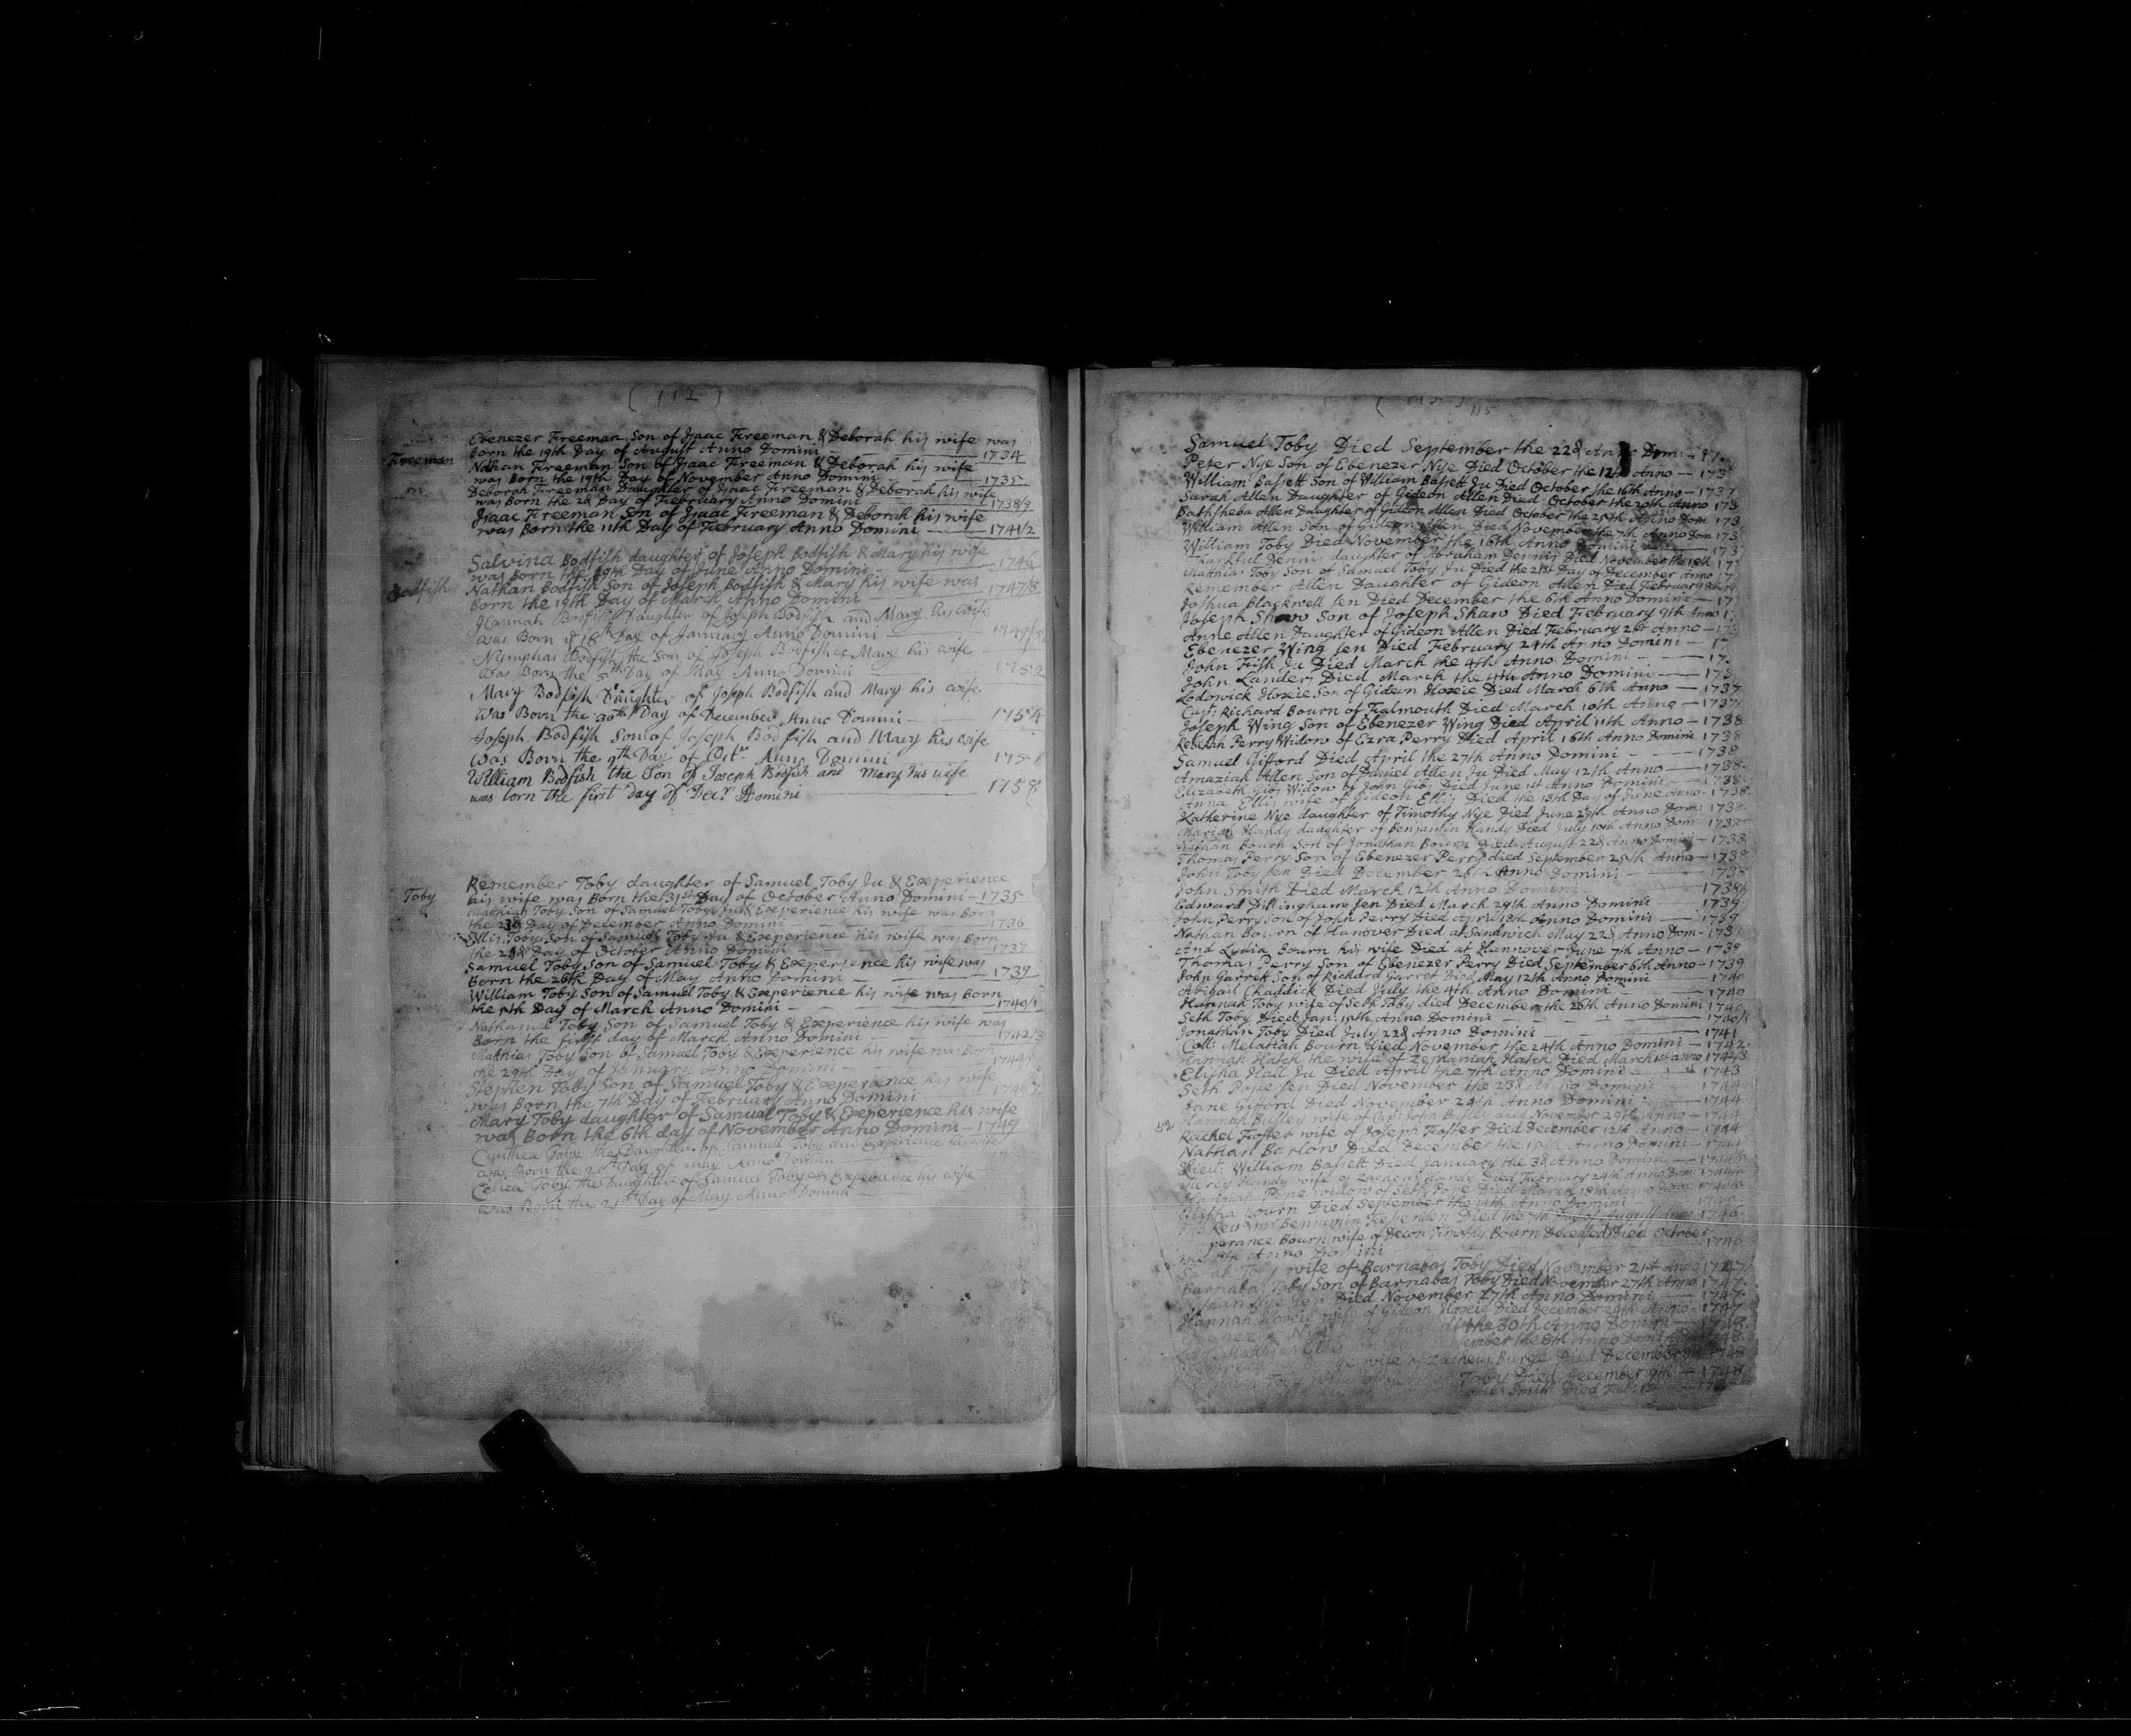 ( 112 )
Freeman
Ebenezer Freeman Son of Isaac Freeman & Deborah his wife was
Born the 19th Day of August Anno Domini — 1734
Nathan Freeman Son of Isaac Freeman & Deborah his wife
was Born the 19th Day of November Anno Domini — 1735
Deborah Freeman Daughter of Isaac Freeman & Deborah his wife
was Born the 2d Day of February Anno Domini — 1738/9
Isaac Freeman Son of Isaac Freeman & Deborah his wife
was Born the 11th Day of February Anno Domini — 1741/2
Bodfish
Salvina Bodfish daughter of Joseph Bodfish & Mary his wife
was Born the 19th Day of June Anno Domini — 1746
Nathan Bodfish Son of Joseph Bodfish & Mary his wife was
Born the 19th Day of March Anno Domini — 1747/8
Hannah Bodfish Daughter of Joseph Bodfish and Mary his wife
Was Born ye 16th Day of January Anno Domini — 1749/50
Nymphas Bodfish the Son of Joseph Bodfish & Mary his wife
Was Born the 5th Day of May Anno Domini — 1752
Mary Bodfish Daughter of Joseph Bodfish and Mary his wife
Was Born the 30th Day of December Anno Domini — 1754
Joseph Bodfish Son of Joseph Bodfish and Mary his wife
Was Born the 9th Day of Octr Anno Domini 1756
William Bodfish the Son of Joseph Bodfish and Mary his wife
was born the first day of Decr Domini — 1758
Toby
Remember Toby daughter of Samuel Toby Ju & Experience
his wife was Born the 31st Day of October Anno Domini — 1735
Matthias Toby Son of Samuel Toby Ju & Experience his wife was Born
the 23d Day of December Anno Domini — 1736
Ellis Toby Son of Samuel Toby Ju & Experience his wife was Born
the 2d Day of October Anno Domini — 1737
Samuel Toby Son of Samuel Toby & Experience his wife was
Born the 26th Day of May Anno Domini — 1739
William Toby Son of Samuel Toby & Experience his wife was Born
the Day of March Anno Domini — 1740/1
Nathaniel Toby Son of Samuel Toby & Experience his wife was
Born the first day of March Anno Domini — 1742/3
Matthias Toby Son of Samuel Toby & Experience his wife was Born
the 29th Day of January Anno Domini — 1744/5
Stephen Toby Son of Samuel Toby & Experience his wife
was Born the 7th Day of February Anno Domini — 1746/7
Mary Toby daughter of Samuel Toby & Experience his wife
was Born the 6th day of November Anno Domini — 1749
Cynthea Toby the Daughter of Samuel Toby and Experience his wife
was Born the Day of May Anno Domini
Celiea Toby the Daughter of Samuel Toby & Experience his wife
was Born the 21st Day of May Anno Domini
115
Samuel Toby Died September the 22d Anno Domi: 17
Peter Nye Son of Ebenezer Nye Died October the 12th Anno — 173
William Bassett Son of William Bassett Ju Died October the 16th Anno — 1737
Sarah Allen Daughter of Gideon Allen Died October the 20th Anno 173
Bathsheba Allen Daughter of Gideon Allen Died October the 25th Anno Dom 173
William Allen Son of Gideon Allen Died November the 7th Anno Dom 173
William Toby Died November the 16th Anno Domini — 173
Thankful Dennis daughter of Abraham Dennis Died November the 18th 17
Matthias Toby Son of Samuel Toby Ju Died the 21st Day of December Anno 17
Remember Allen Daughter of Gideon Allen Died February
Joshua Blackwell sen Died December the 6th Anno Domini — 17
Joseph Shaw Son of Joseph Shaw Died February 9th Anno 1
Anne Allen Daughter of Gideon Allen Died February 21st Anno — 173
Ebenezer Wing sen Died February 24th Anno Domini — 17
John Fish Ju Died March the 4th Anno Domini — 17
John Landers Died March the 4th Anno Domini — 173
Lodowick Hoxie Son of Gideon Hoxie Died March 6th Anno — 1737
Capt: Richard Bourn of Falmouth Died March 10th Anno — 1737/
Joseph Wing Son of Ebenezer Wing Died April 11th Anno — 1738
Rebekah Perry Widow of Ezra Perry Died April 16th Anno Domini 1738
Samuel Gifford Died April the 27th Anno Domini — 1738
Amaziah Allen Son of Daniel Allen Ju Died May 12th Anno — 1738
Elizabeth Gibs Widow of John Gibs Died June 1st Anno Domini — 1738
Anna Ellis wife of Gideon Ellis Died the 13th Day of June Anno — 1738
Katherine Nye daughter of Timothy Nye Died June 29th Anno Dom: 1738
Mariah Handy daughter of Benjamin Handy Died July 10th Anno Dom 1738
Nathan Bourn Son of Jonathan Bourn Died August 22d Anno Domini — 1738
Thomas Perry Son of Ebenezer Perry died September 25th Anno — 1738
John Toby sen Died December 26th Anno Domini — 1738
John Smith Died March 12th Anno Domini — 1738/9
Edward Dillingham sen Died March 29th Anno Domini — 1739
John Perry Son of John Perry Died April 18th Anno Domini — 1739
Nathan Bourn of Hanover Died at Sandwich May 22d Anno Dom — 1739
And Lydia Bourn his wife Died at Hannover June 7th Anno — 1739
Thomas Perry Son of Ebenezer Perry Died September 6th Anno — 1739
John Garrett Son of Richard Garret Died May 12th Anno Domini — 1740
Abigail Chaddick Died July the 4th Anno Domini — 1740
Hannah Toby wife of Seth Toby died December the 26th Anno Domini 1740
Seth Toby Died Jan: 19th Anno Domini — 1740/1
Jonathan Toby Died July 22d Anno Domini — 1741
Coll: Melatiah Bourn died November the 24th Anno Domini — 1742
Hannah Hatch the wife of Zephaniah Hatch Died March 1st anno 1742/3
Elisha Hall Ju Died April the 7th Anno Domini — 1743
Seth Pope sen Died November the 23d Anno Domini 1744
Jane Gifford Died November 24th Anno Domini: — 1744
Hannah Busley wife of Capt: John Busley died November 29th Anno — 1744
Rachel Foster wife of Joseph Foster Died December 12th Anno — 1744
Nathan Barlow Died December the Anno Domini — 1744
Lieu: William Bassett Died January the 3d Anno Domini — 1744/5
Mercy Handy wife of Zacheus Handy Died February 24th Anno Dom: 1744/5
Hannah Pope widow of Seth Pope Died March 18th Anno Dom:
Elisha Bourn Died September the 14th Anno Domini
The Revd Mr Benjamin Fessenden Died the 7th Day of August Anno 1746
perance Bourn wife of Decon Timothy Bourn Deceased Died October
the 8th Anno Domini 1746
Sarah Toby wife of Barnabas Toby Died November 21st Anno 1747
Barnabas Toby Son of Barnabas Toby Died November 27th Anno 1747
Nathan Nye sen Died November 27th Anno Domini — 1747
Hannah Hoxie wife of Gideon Hoxie Died December 24th Anno — 1747
August the 30th Anno Domini — 1748
Matthias Ellis ember the 8th Anno Domini 1748
wife of Zacheus Burge Died December 1748
Toby Died December 9th — 1748
Smith Died Feb: 1st